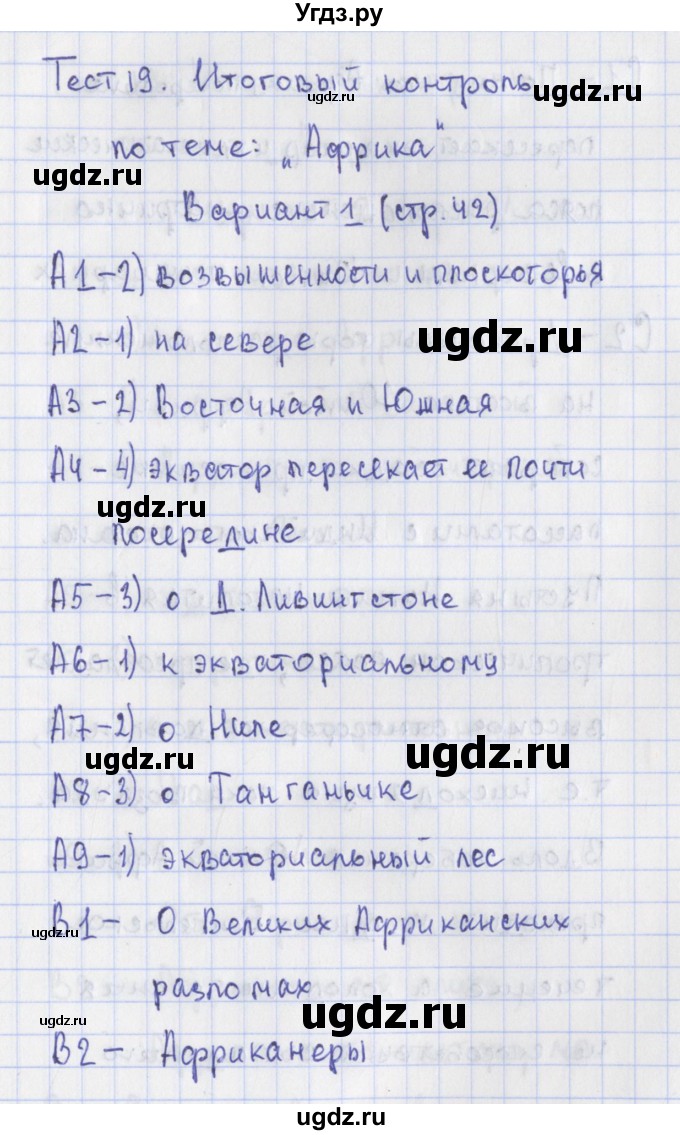 Угдз.ру
Тест 19. Итоговый контроль
ugdz.ru ugdz.ru
по теме: „Африка"
ugdz.ru
Вариант 1 (стр.42)
А1-2) возвышенности и плоскогорья
ugdz.ru
А2-1) на севере
А3-2) Восточная и Южная
А4-4) экватор пересекает ее почти
ugdz.ru
посередине
А5-3) о Д. Ливингстоне
А6-1) к экваториальному
А7-2) о Ниле
ugdz.ru ugdz.ru
А8-3) о Танганьике
А9-1) экваториальный лес
В1- О Великих Африканских
ugdz.ru
разломах
ugdz.ru ugdz.ru
В2- Африканеры
ugdz.ru